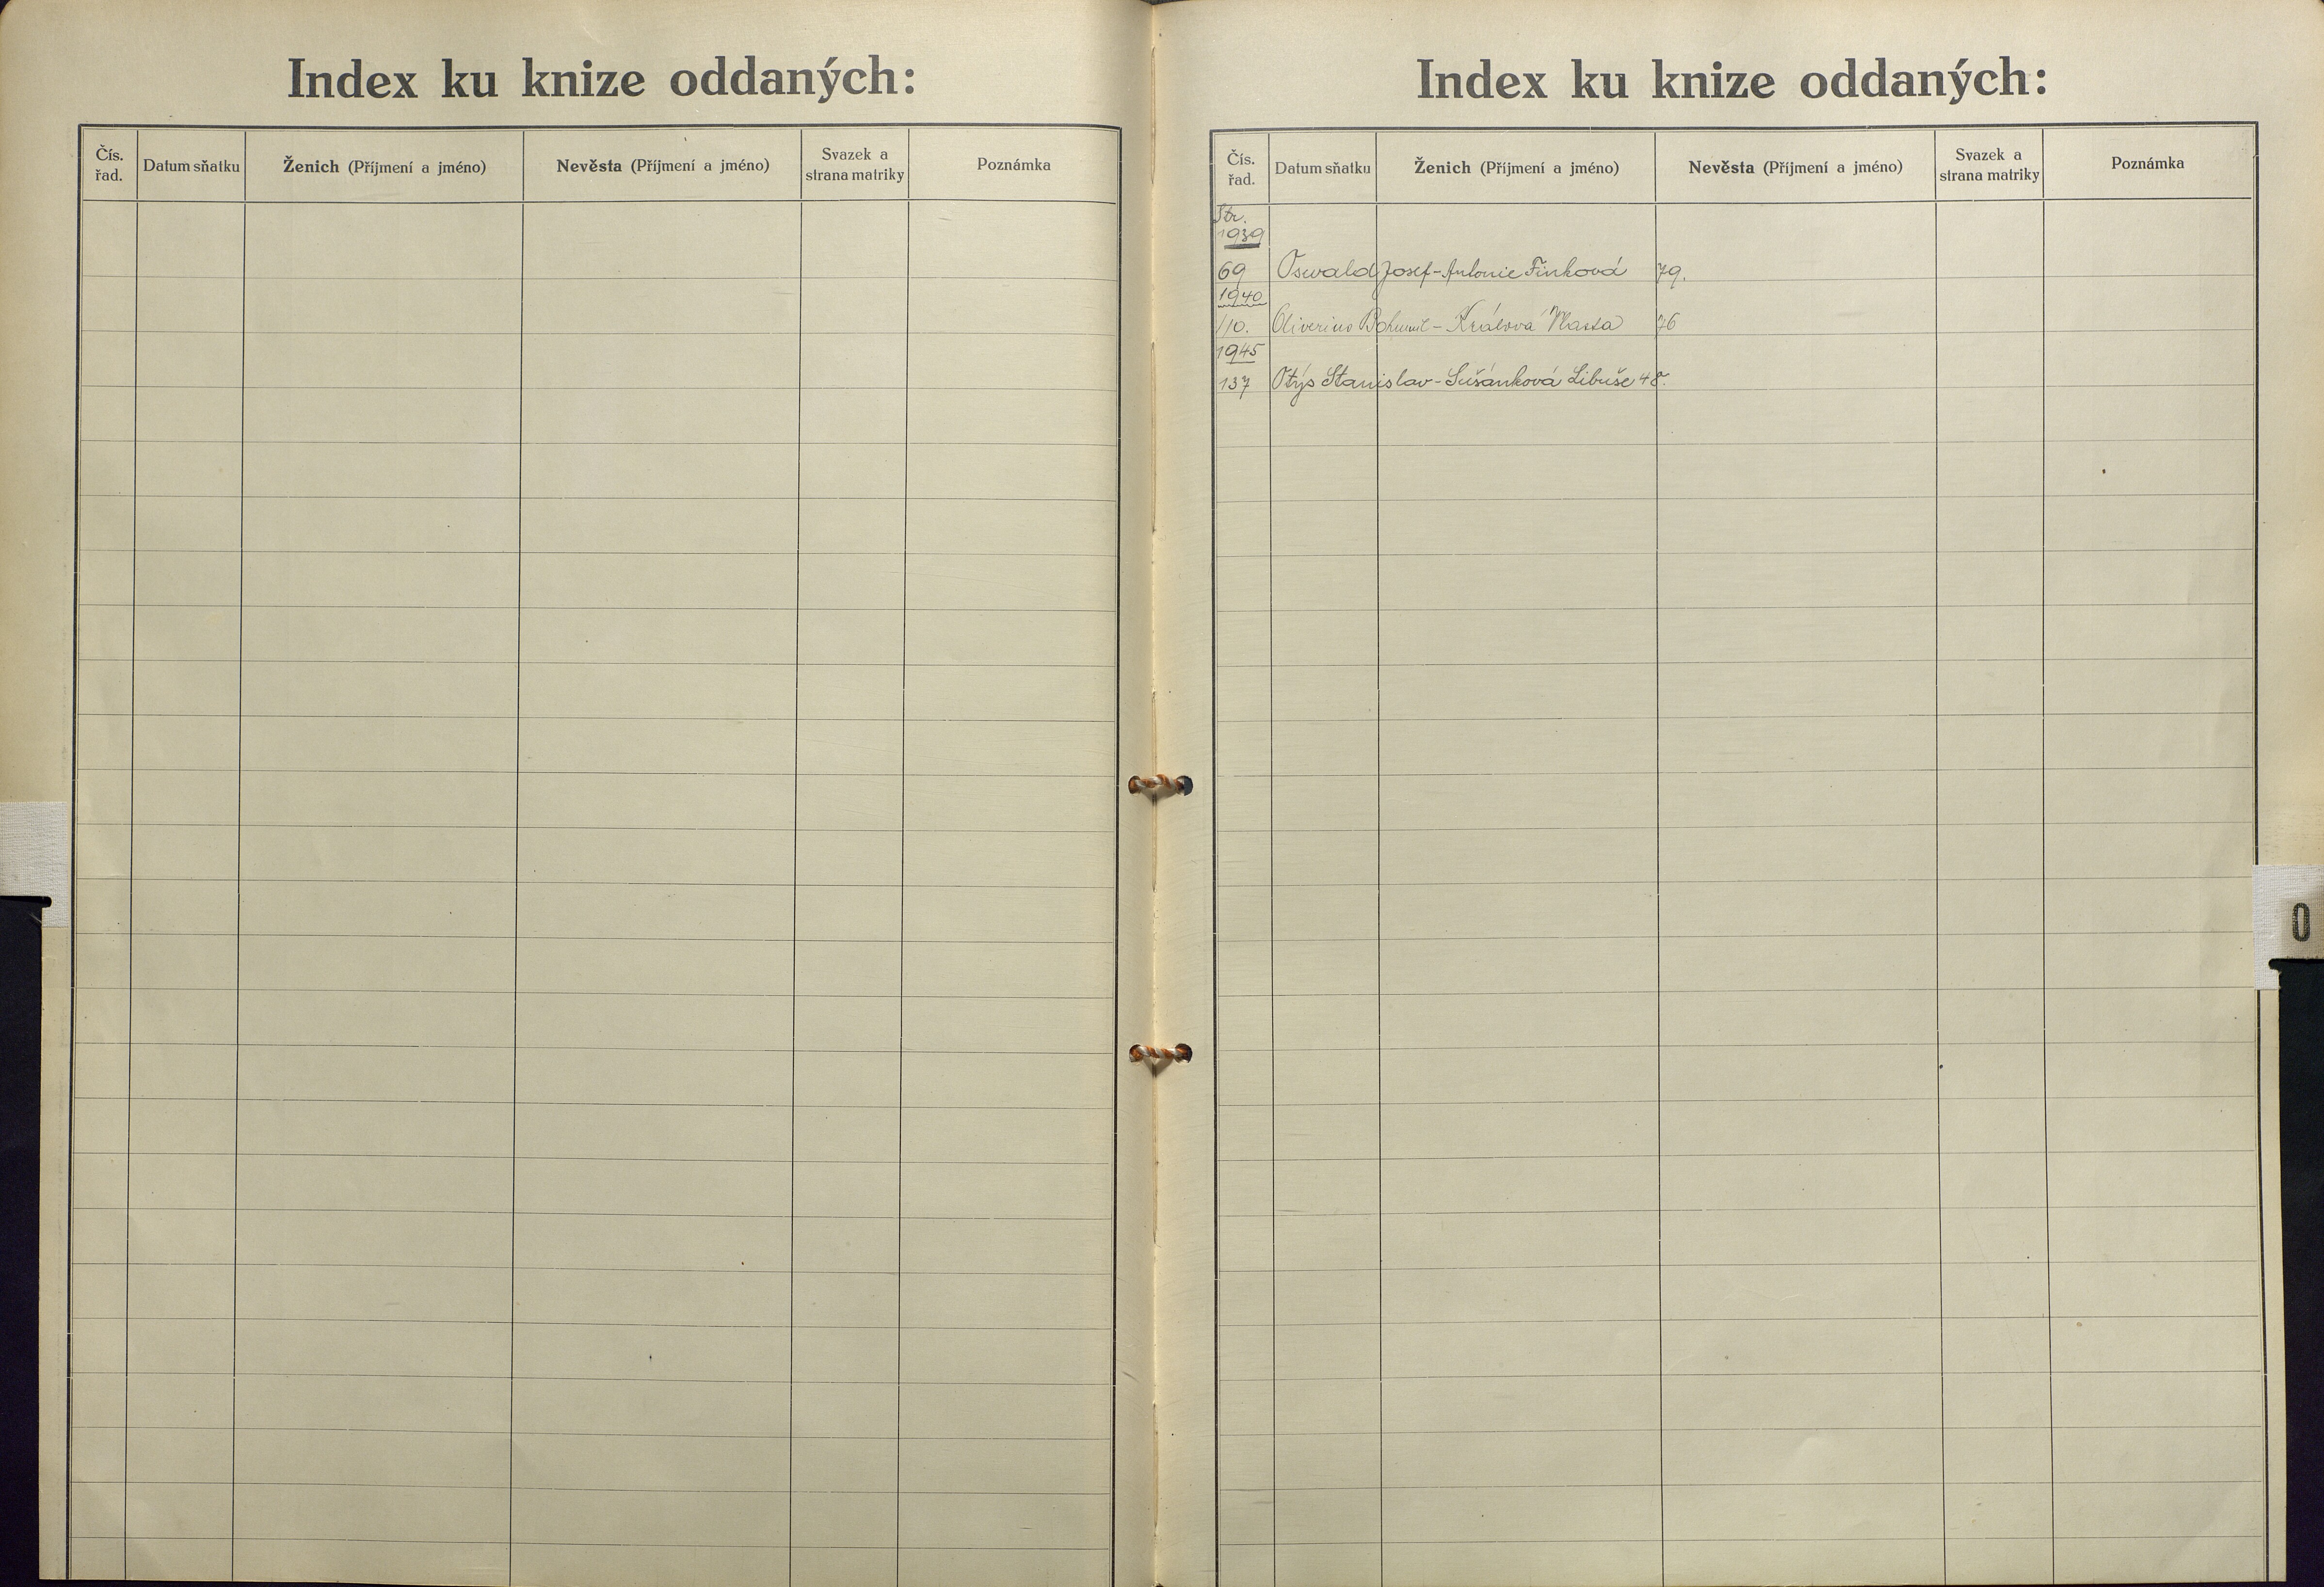 Index ku knize oddaných:
Čís. řad.
Datum sňatku
Ženich (Příjmení a jméno)
Nevěsta (Příjmení a jméno)
Svazek a strana matriky
Poznámka
Index ku knize oddaných:
Čís. řad.
Datum sňatku
Ženich (Příjmení a jméno)
Nevěsta (Příjmení a jméno)
Svazek a strana matriky
Poznámka
Str.
1939
69 Oswald Josef - Antonie Finková 79.
1940
110. Oliverius Bohumil - Králová Vlasta 76
1945
137 Otýs Stanislav - Sušánková Libuše 48.
O